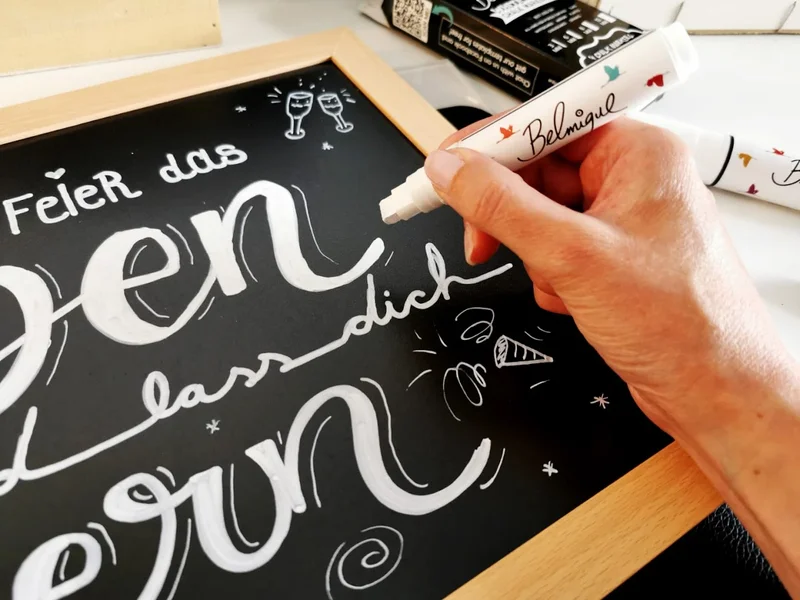 FeieR das
en
d lass dich
ern
Belmique
Chat with us on Facebook and
get our templates for free!